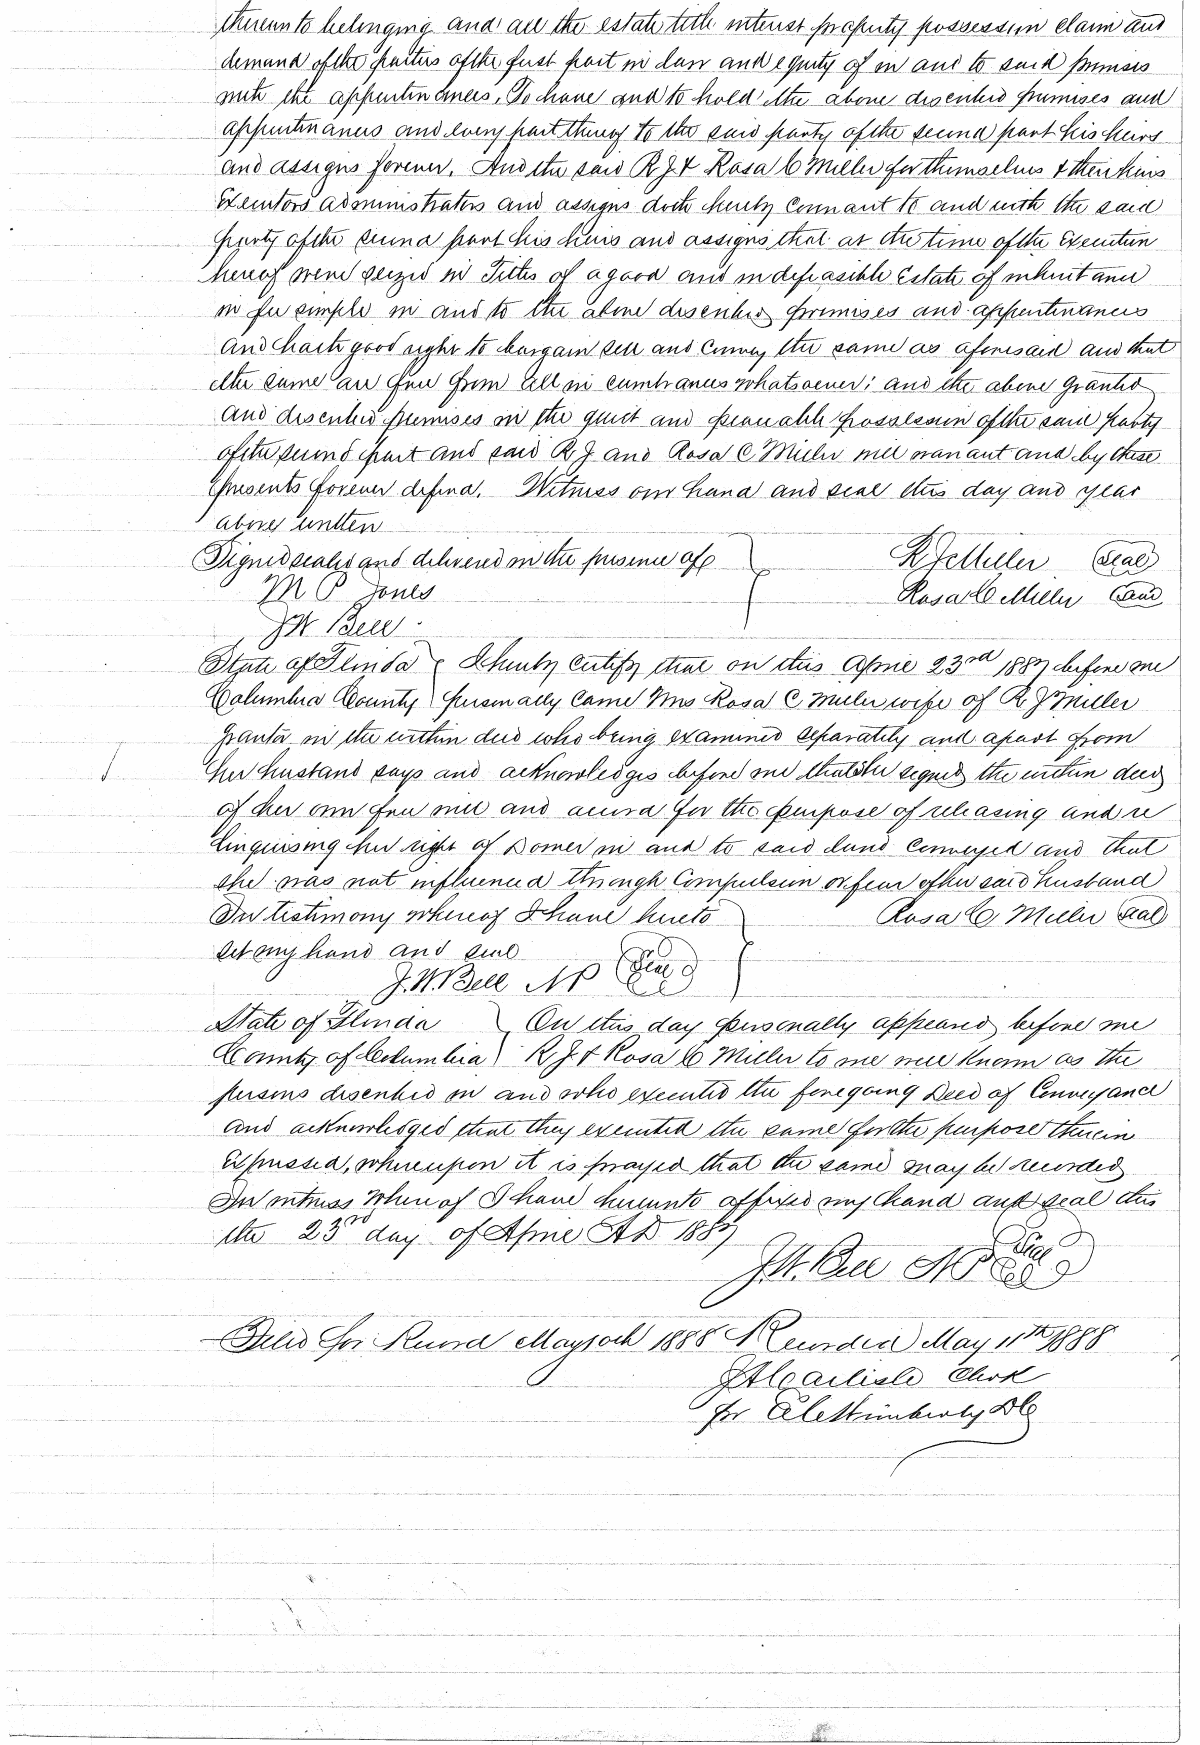 thereunto belonging and all the estate title interest property possession claim and
demand of the parties of the first part in law and equity of in and to said premises
with the appertinances. To have and to hold the above described premises and
appertinances and every part thereof to the said party of the second part his heirs
and assigns forever. And the said R J & Rosa C Miller for themselves & their heirs
Executors administrators and assigns doth hereby covenant to and with the said
party of the second part his heirs and assigns that at the time of the Execution
hereof were seized in Titles of a good and indefeasible Estate of inheritance
in fee simple in and to the above described premises and appertinances
and hath good right to bargain sell and convey the same as aforesaid and that
the same are free from all in cumbrances whatsoever; and the above granted
and described premises in the quiet and peaceable possession of the said party
of the second part and said R J and Rosa C Miller will warrant and by these
presents forever defend. Witness our hand and seal this day and year
above written
Signed sealed and delivered in the presence of R J Miller Seal
M P Jones Rosa C Miller Seal
J W Bell
State of Florida I hereby certify that on this April 23rd 1887 before me
Columbia County personally came Mrs Rosa C Miller wife of R J Miller
Grantor in the within deed who being examined separately and apart from
her husband says and acknowledges before me that she signed the within deed
of her own free will and accord for the purpose of releasing and re
linquising her right of Dower in and to said land conveyed and that
she was not influenced through Compulsion or fear of her said husband
In testimony whereof I have hereto Rosa C Miller Seal
set my hand and seal
J. W. Bell NP Seal
State of Florida On this day personally appeared before me
County of Columbia R J & Rosa C Miller to me well known as the
persons described in and who executed the foregoing Deed of Conveyance
and acknowledged that they executed the same for the purpose therein
Expressed, whereupon it is prayed that the same may be recorded
In witness whereof I have hereunto affixed my hand and seal this
the 23rd day of April AD 1887
J. W. Bell NP Seal
Filed for Record May 10th 1888 Recorded May 11th 1888
Carlisle Clerk
for Kimberly DC